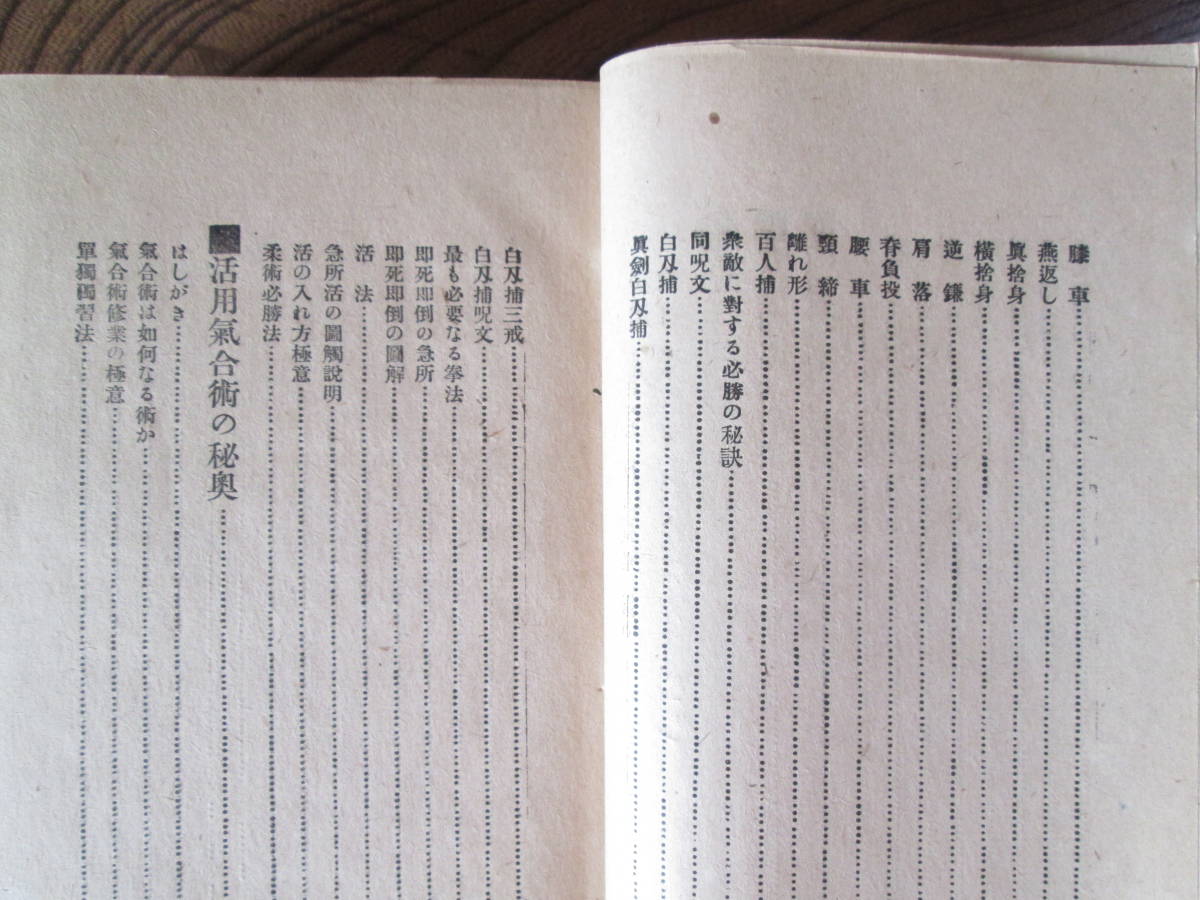 膝車
燕返し
眞捨身
橫捨身
逆鎌
肩落
脊負投
腰車
頸締
離れ形
百人捕
衆敵に對する必勝の秘訣
同呪文
白刄捕
眞劍白刄捕
白刄捕三戒
白刄捕呪文
最も必要なる拳法
卽死卽倒の急所
卽死卽倒の圖解
活法
急所活の圖觸說明
活の入れ方極意
柔術必勝法
活用氣合術の秘奧
はしがき
氣合術は如何なる術か
氣合術修業の極意
單獨獨習法